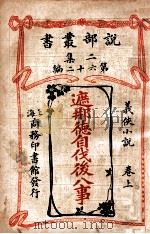 說部叢書
第二集第六十二編
義俠小說 卷上
遮那德自伐後八事
上海商務印書館發行